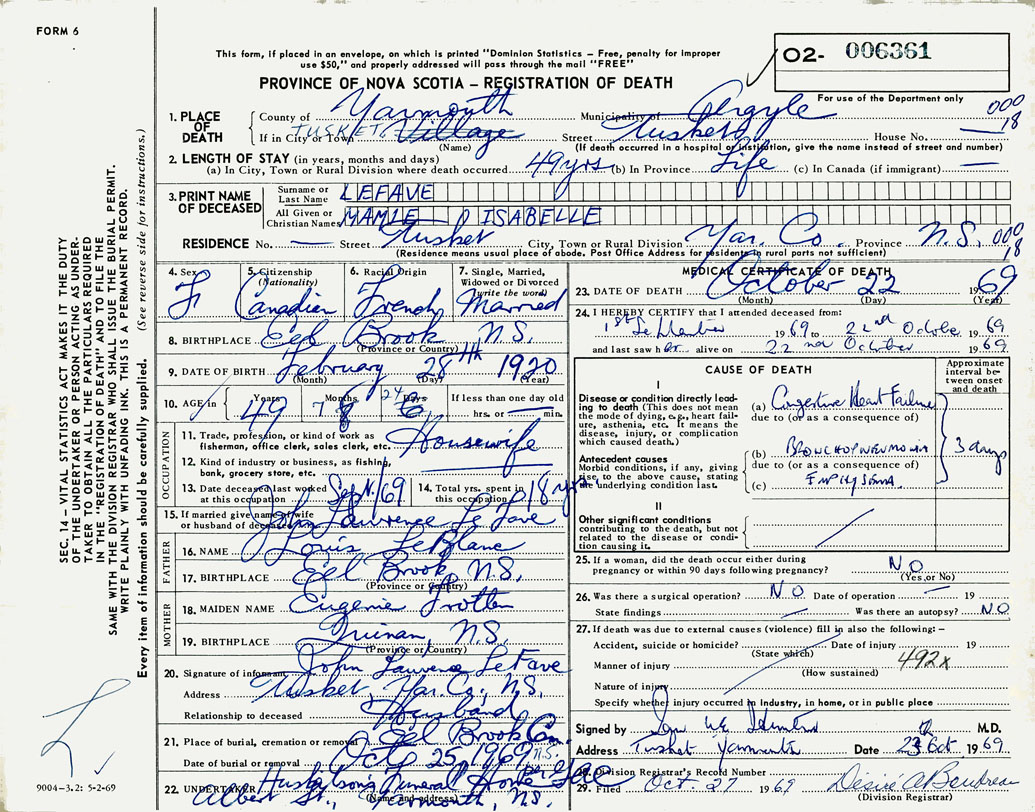 FORM 6
This form, if placed in an envelope, on which is printed "Dominion Statistics – Free, penalty for improper
use $50," and properly addressed will pass through the mail "FREE"
O2- 006361
PROVINCE OF NOVA SCOTIA – REGISTRATION OF DEATH
For use of the Department only
000
18
1. PLACE OF DEATH
County of Yarmouth Municipality of Argyle
If in City or Town TUSKET Village Street Tusket House No. —
(Name) (If death occurred in a hospital or institution, give the name instead of street and number)
2. LENGTH OF STAY (in years, months and days)
(a) In City, Town or Rural Division where death occurred 49 yrs (b) In Province Life (c) In Canada (if immigrant) —
3. PRINT NAME OF DECEASED
Surname or Last Name LEFAVE
All Given or Christian Names MAMIE ISABELLE
RESIDENCE No. — Street Tusket City, Town or Rural Division Yar. Co. Province N.S. 000
18
(Residence means usual place of abode. Post Office Address for residents in rural parts not sufficient)
4. Sex F
5. Citizenship (Nationality) Canadian
6. Racial Origin French
7. Single, Married, Widowed or Divorced (write the word) Married
8. BIRTHPLACE Eel Brook N.S.
(Province or Country)
9. DATE OF BIRTH February 28th 1920
(Month) (Day) (Year)
10. AGE in Years 49 Months 7 8 Days 24 If less than one day old
hrs. or — min.
OCCUPATION
11. Trade, profession, or kind of work as
fishermon, office clerk, sales clerk, etc. Housewife
12. Kind of industry or business, as fishing,
bank, grocery store, etc.
13. Date deceased last worked at this occupation Sept/69
14. Total yrs. spent in this occupation 18 yrs
15. If married give name of wife
or husband of deceased John Lawrence LeFave
FATHER
16. NAME Louis LeBlanc
17. BIRTHPLACE Eel Brook, N.S.
(Province or Country)
MOTHER
18. MAIDEN NAME Eugenie Frotten
19. BIRTHPLACE Quinan, N.S.
(Province or Country)
20. Signature of informant John Lawrence LeFave
Address Tusket, Yar. Co., N.S.
Relationship to deceased Husband
21. Place of burial, cremation or removal Eel Brook Cem.
N.S.
Date of burial or removal Oct. 25, 1969
22. UNDERTAKER Huskilson's Funeral Home
Albert St., Yarmouth, N.S.
(Name and address)
MEDICAL CERTIFICATE OF DEATH
23. DATE OF DEATH October 22 1969
(Month) (Day) (Year)
24. I HEREBY CERTIFY that I attended deceased from:
1st September 1969 to 22nd October 1969
and last saw her alive on 22nd October 1969
CAUSE OF DEATH
Approximate interval between onset and death
I
Disease or condition directly leading to death (This does not mean the mode of dying, e.g., heart failure, asthenia, etc. It means the disease, injury, or complication which caused death.)
(a) Congestive Heart Failure
due to (or as a consequence of)
Antecedent causes
Morbid conditions, if any, giving rise to the above cause, stating the underlying condition last.
(b) BRONCHOPNEUMONIA
due to (or as a consequence of)
(c) EMPHYSEMA
3 days
II
Other significant conditions
contributing to the death, but not
related to the disease or condition
causing it.
25. If a woman, did the death occur either during
pregnancy or within 90 days following pregnancy? NO
(Yes or No)
26. Was there a surgical operation? NO Date of operation — 19
State findings Was there an autopsy? NO
27. If death was due to external causes (violence) fill in also the following: –
Accident, suicide or homicide? Date of injury 19
(State which)
Manner of injury 492x
(How sustained)
Nature of injury
Specify whether injury occurred in industry, in home, or in public place
Signed by M.D.
Address Tusket Yarmouth Date 23 Oct 1969
28. Division Registrar's Record Number
29. Filed Oct. 27 1969 Desire A Boudreau
(Division Registrar)
SEC. 14 – VITAL STATISTICS ACT MAKES IT THE DUTY
OF THE UNDERTAKER OR PERSON ACTING AS UNDERTAKER
TO OBTAIN ALL THE PARTICULARS REQUIRED
IN THE "REGISTRATION OF DEATH" AND TO FILE THE
SAME WITH THE DIVISION REGISTRAR WHO SHALL ISSUE THE BURIAL PERMIT.
WRITE PLAINLY WITH UNFADING INK. THIS IS A PERMANENT RECORD.
Every item of information should be carefully supplied. (See reverse side for instructions.)
9004-3.2: 5-2-69